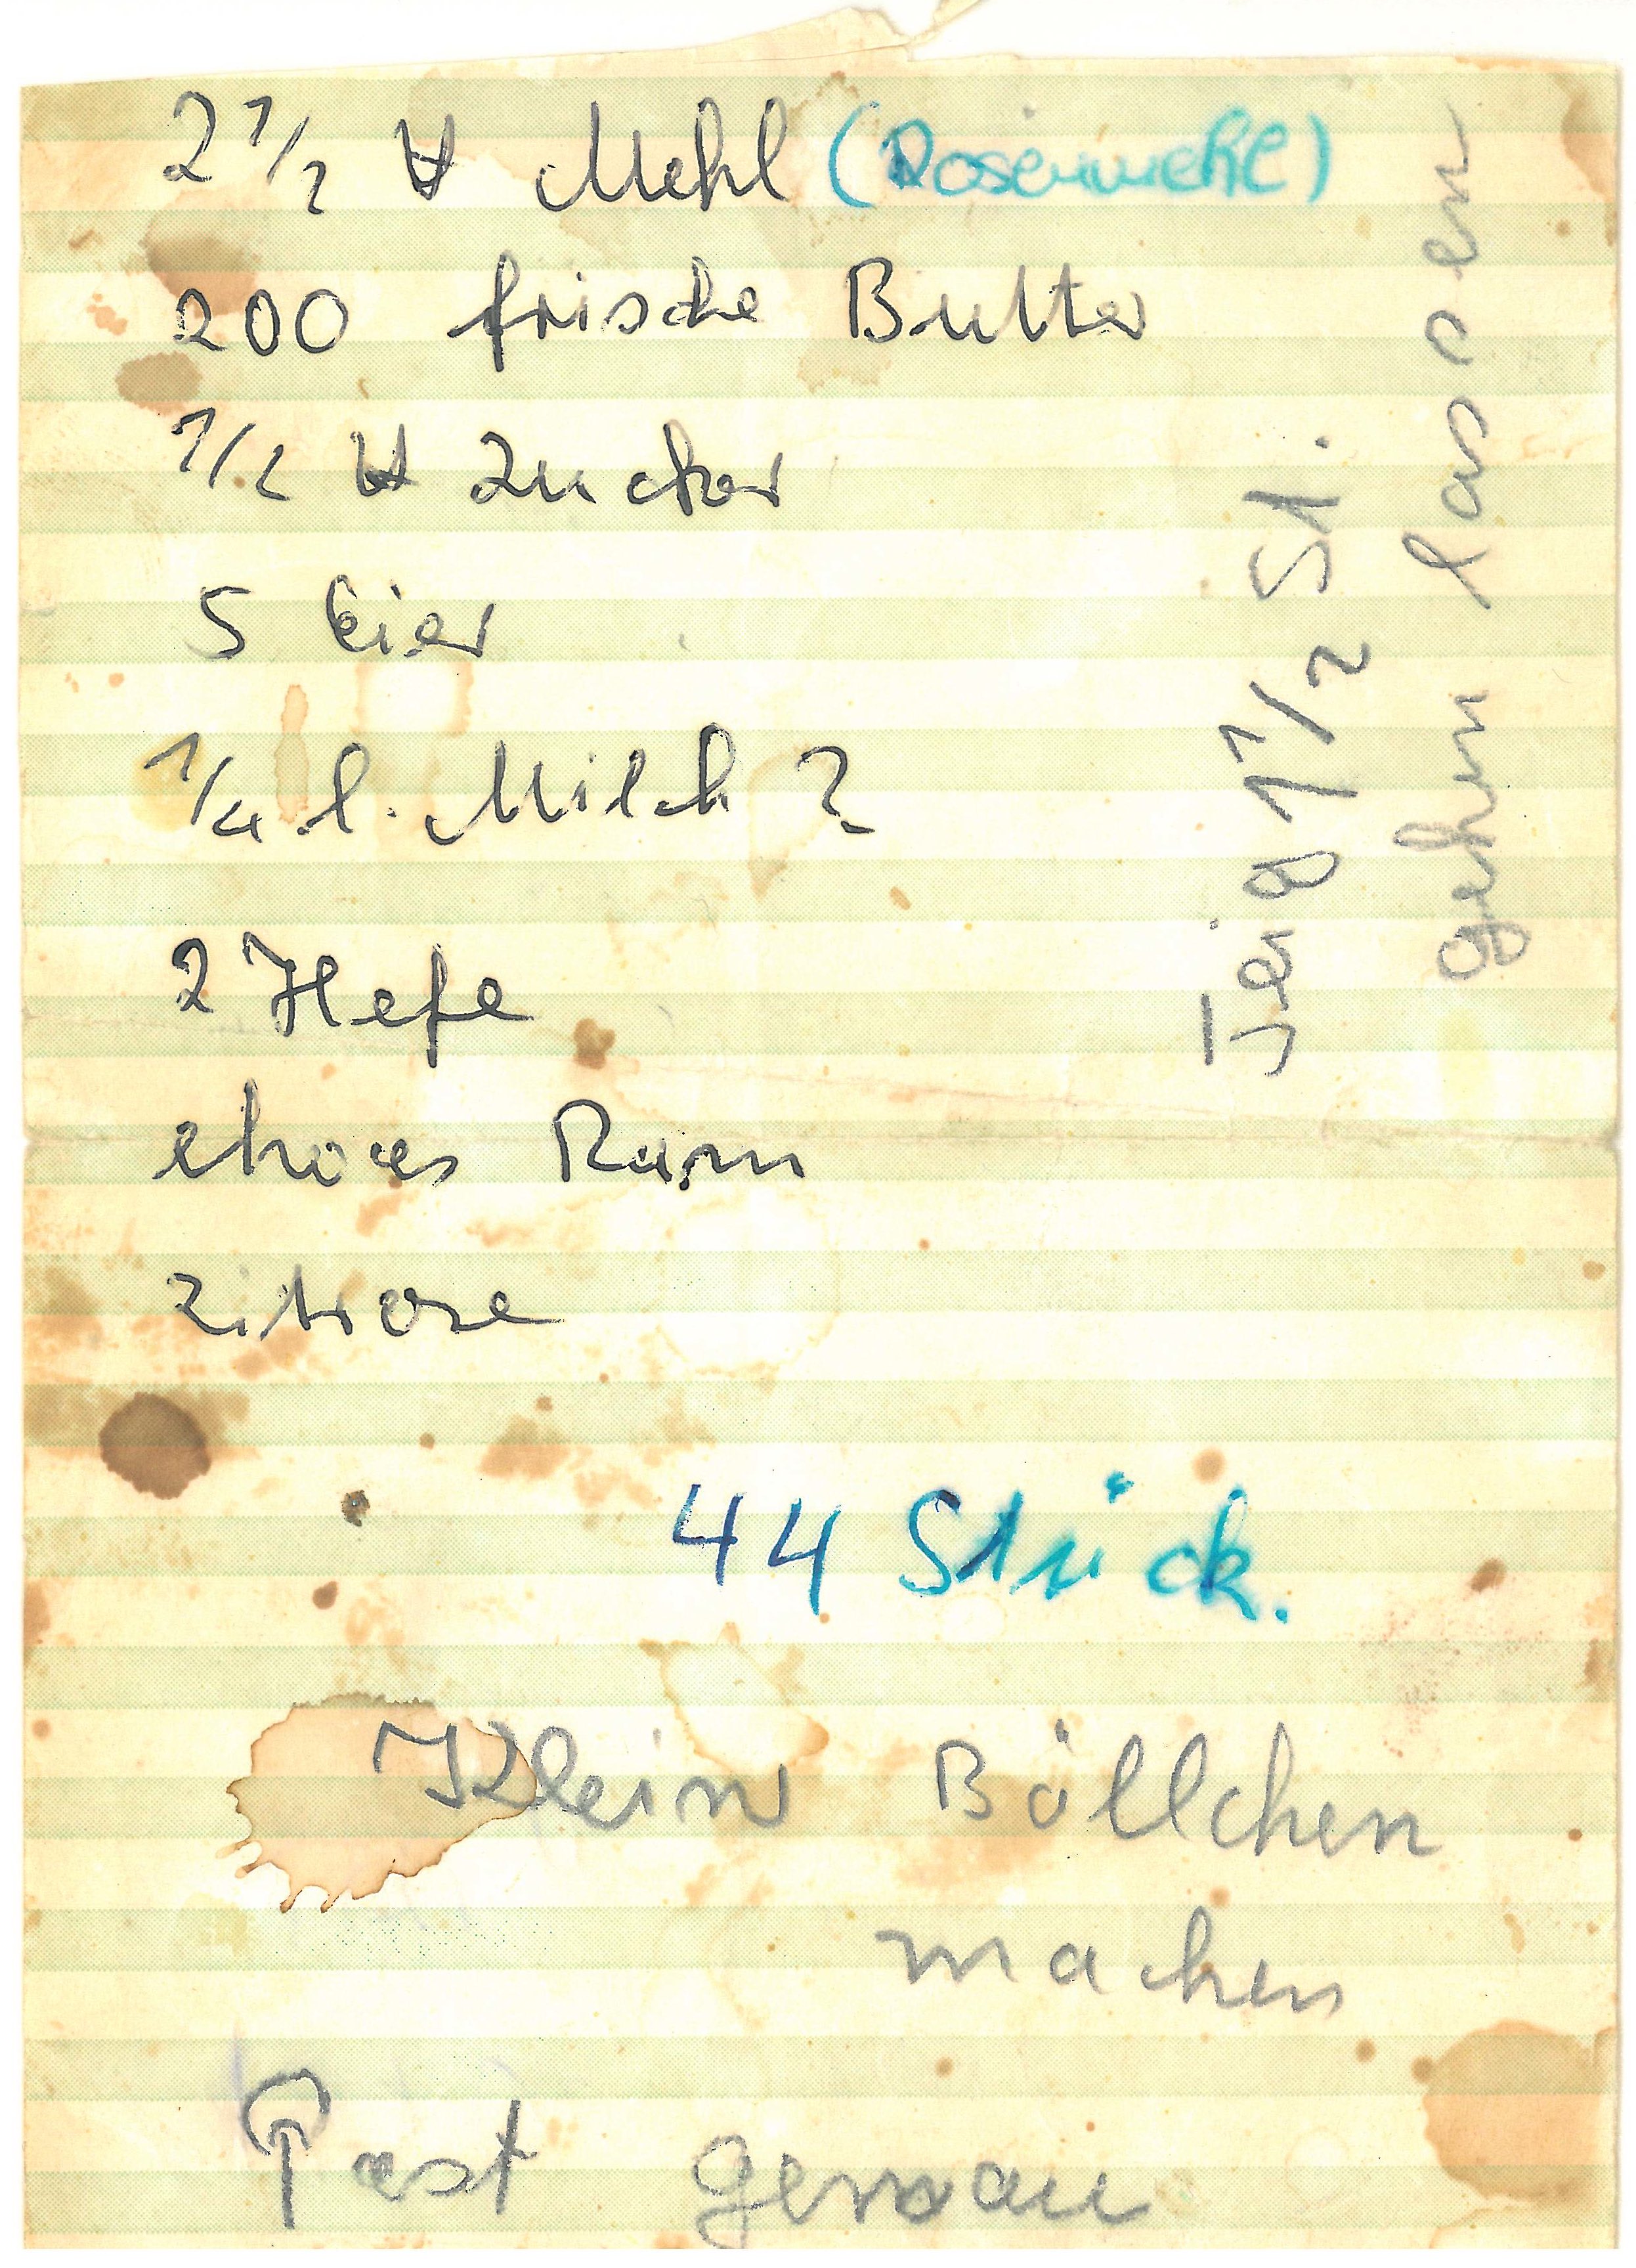 2 1/2 ℔ Mehl (Rosenmehl)
200 frische Butter
1/2 ℔ Zucker
5 Eier
1/4 l. Milch ?
2 Hefe
etwas Rum
Zitrone
44 Stück.
Klein Böllchen
machen
Past genau
Teig 1 1/2 St.
gehn lassen